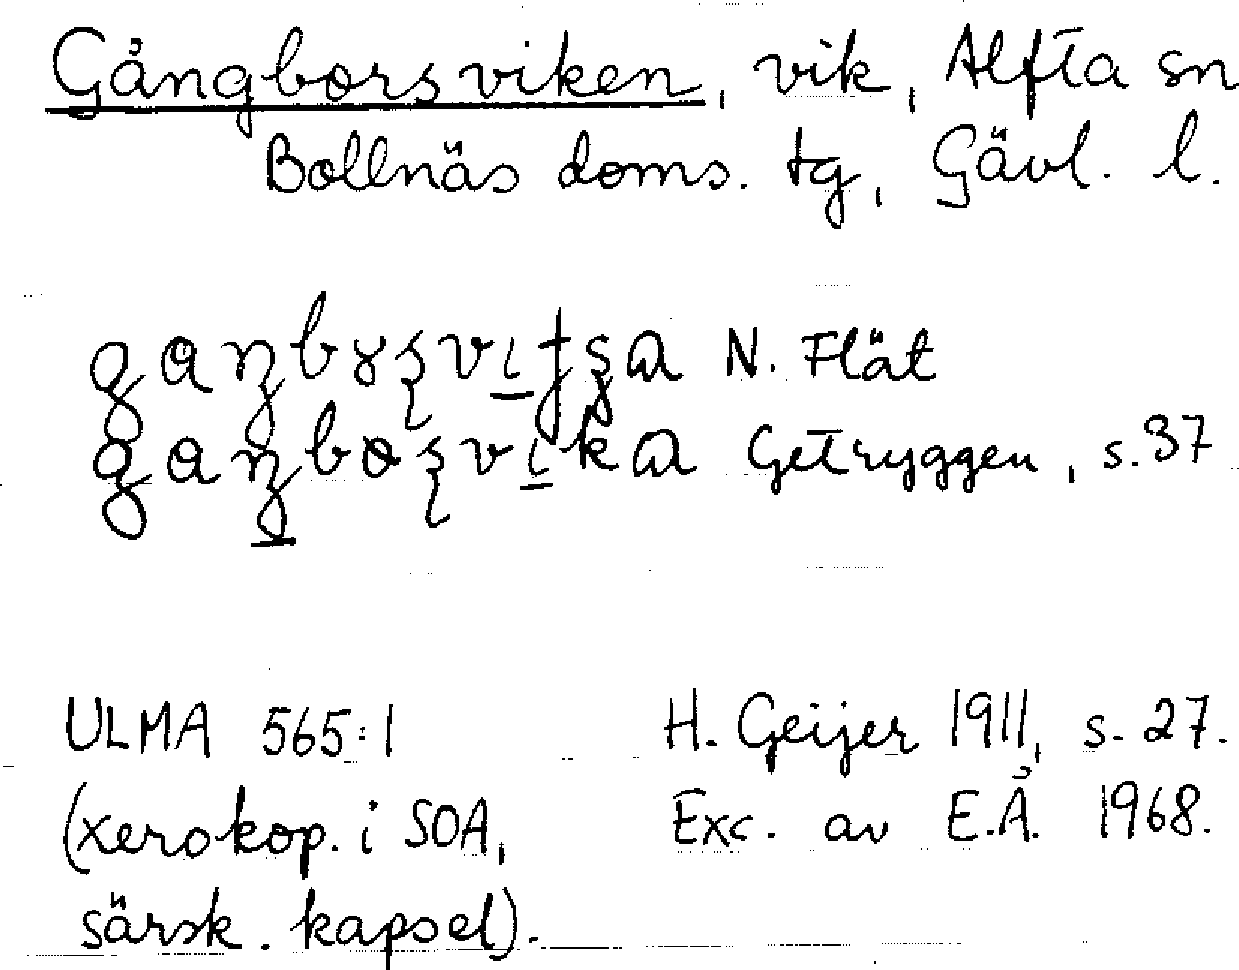 Gångborsviken, vik, Alfta sn
Bollnäs doms. tg, Gävl. l.
N. Flät
Getryggen, s. 37
ULMA 565:1
(xerokop. i SOA,
särsk. kapsel).
H. Geijer 1911, s. 27.
Exc. av E.Å. 1968.